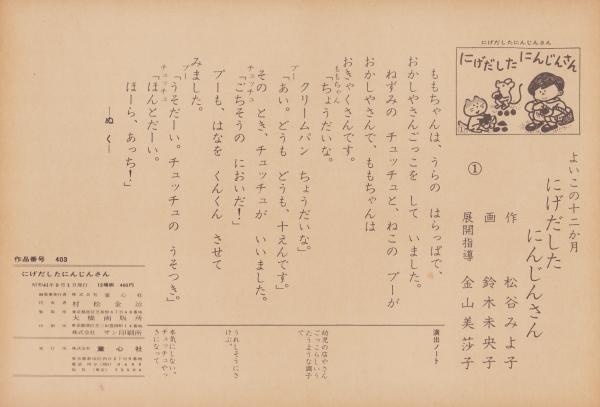 にげだしたにんじんさん
にげだした にんじんさん
よいこの十二か月
にげだした
にんじんさん
作 松谷みよ子
画 鈴木未央子
展開指導 金山美莎子
①
ももちゃんは、うらの はらっぱで、
おかしやさんごっこを して いました。
ねずみの チュッチュと、ねこの プーが
おかしやさんで、ももちゃんは
おきゃくさんです。
ももちゃん
「ちょうだいな。
クリームパン ちょうだいな」
プー
「あい。どうも どうも、十えんです」
その とき、チュッチュが いいました。
チュッチュ
「ごちそうの においだ!」
プーも、はなを くんくん させて
みました。
プー
「うそだーい。チュッチュの うそつき」
チュッチュ
「ほんとだーい。
ほーら、あっち!」
―ぬ く―
演出ノート
幼児の店やさん
ごっこらしい
たような調子
うれしそうにさ
けぶ。
本気にしない。
チュッチュやっ
きになって
作品番号 403
にげだしたにんじんさん
昭和41年9月1日発行 12場面 460円
株式会社 童心社
村松金治
大橋画版所
株式会社 サン印刷所
発行所 株式会社 童心社